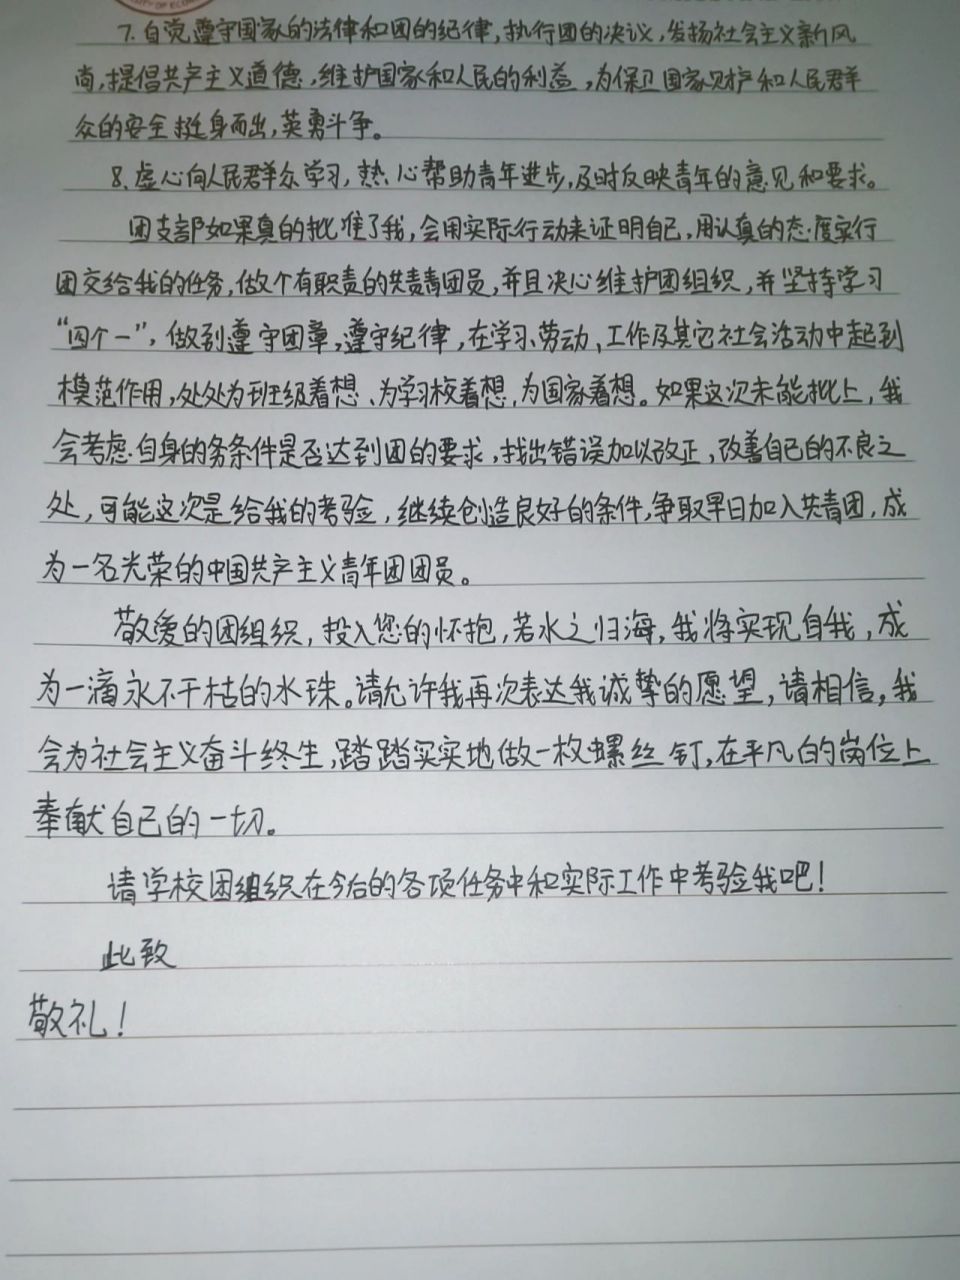 7.自觉遵守国家的法律和团的纪律,执行团的决议,发扬社会主义新风
尚,提倡共产主义道德,维护国家和人民的利益,为保卫国家财产和人民群
众的安全挺身而出,英勇斗争。
8.虚心向人民群众学习,热心帮助青年进步,及时反映青年的意见和要求。
团支部如果真的批准了我,会用实际行动来证明自己,用认真的态度实行
团交给我的任务,做个有职责的共责青团员,并且决心维护团组织,并坚持学习
“四个一”,做到遵守团章,遵守纪律,在学习、劳动、工作及其它社会活动中起到
模范作用,处处为班级着想、为学习校着想,为国家着想。如果这次未能批上,我
会考虑自身的务条件是否达到团的要求,找出错误加以改正,改善自己的不良之
处,可能这次是给我的考验,继续创造良好的条件,争取早日加入共青团,成
为一名光荣的中国共产主义青年团团员。
敬爱的团组织,投入您的怀抱,若水之归海,我将实现自我,成
为一滴永不干枯的水珠。请允许我再次表达我诚挚的愿望,请相信,我
会为社会主义奋斗终生,踏踏实实地做一枚螺丝钉,在平凡的岗位上
奉献自己的一切。
请学校团组织在今后的各项任务中和实际工作中考验我吧!
此致
敬礼!